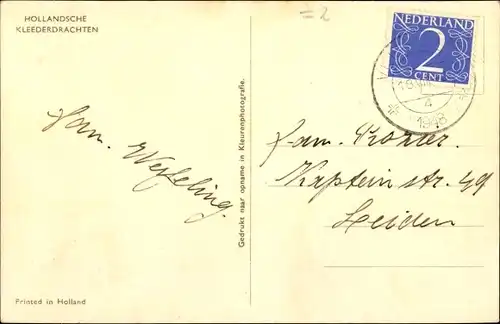 HOLLANDSCHE
KLEEDERDRACHTEN
=2
NEDERLAND
2
CENT
1948
Fam.
Gedrukt naar opname in Kleurenphotografie.
Fam.
Kaptein str. 49
Leiden
Printed in Holland